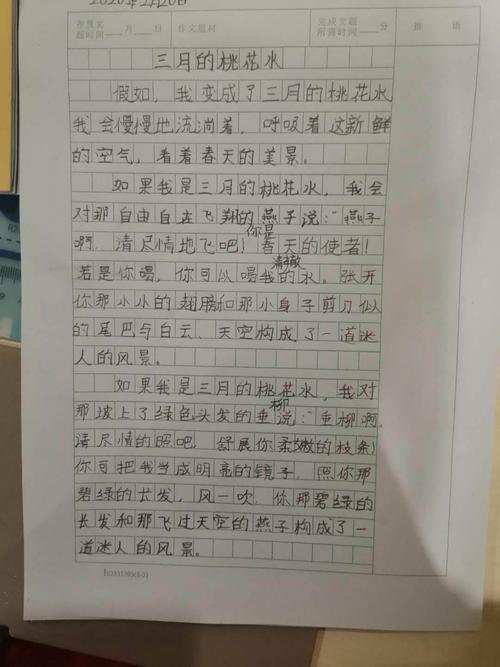 2020年2月20日
布置文题时间 月 日 作文题材 完成文题所需时间 分 批语
三月的桃花水
假如，我变成了三月的桃花水
我会慢慢地流淌着，呼吸着这新鲜
的空气，看着春天的美景。
如果我是三月的桃花水，我会
对那自由自在飞翔的燕子说：“燕子
啊，请尽情地飞吧！你是春天的使者！
若是你喝，你可以喝我清澈的水。张开
你那小小的翅膀和那小身子剪刀似
的尾巴与白云、天空构成了一道迷
人的风景。
如果我是三月的桃花水，我对
那坡上了绿色头发的垂柳说：“垂柳啊，
请尽情的照吧，舒展你柔嫩的枝条！
你可把我当成明亮的镜子，照你那
碧绿的长发，风一吹，你那碧绿的
长发和那飞过天空的燕子构成了一
道迷人的风景。